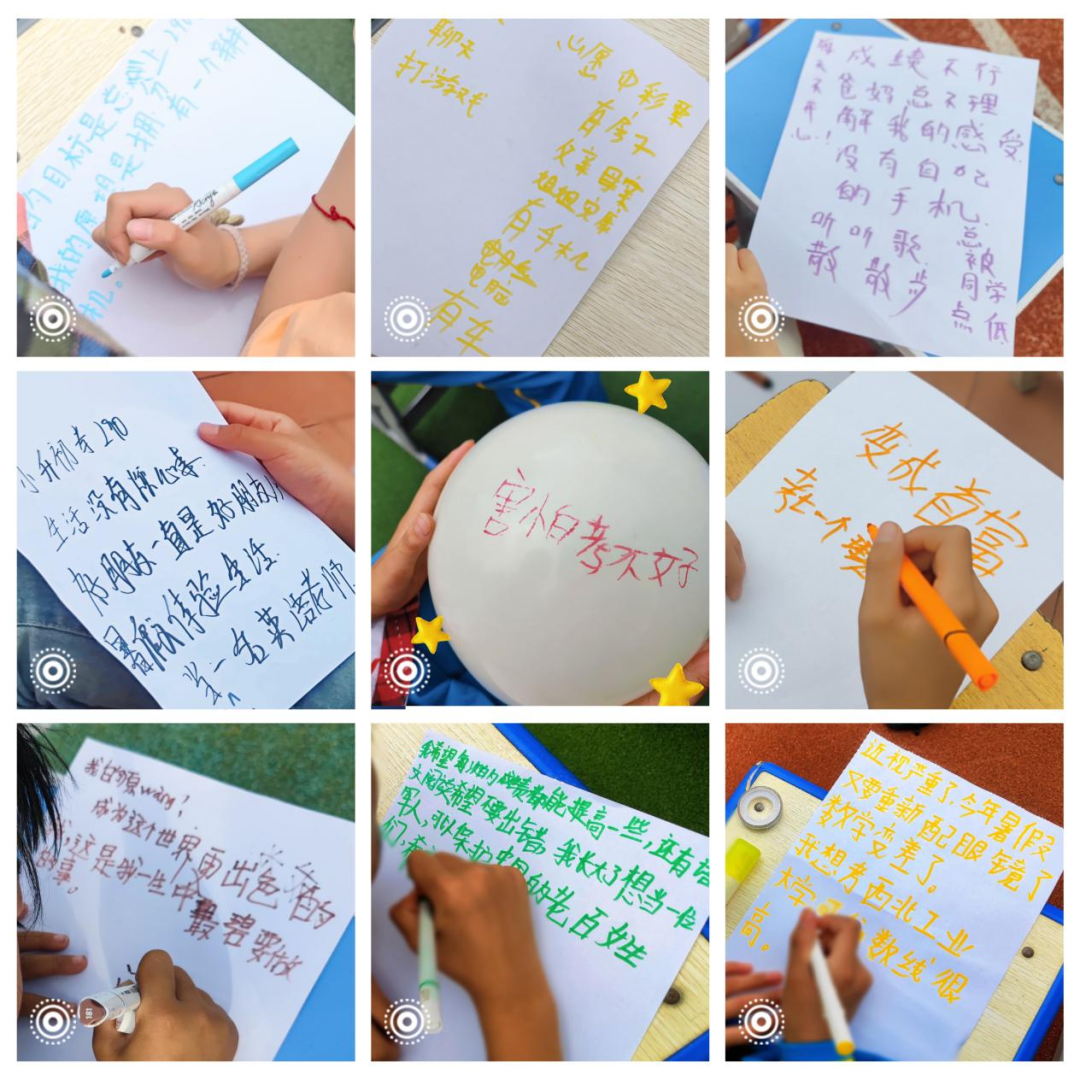 的目标是总分上290
我的愿望是拥有一个
机。
聊天
打游戏
心愿 中彩票
有房子
父亲母亲
姐姐安康
有手机
电脑
有车
成绩不行
爸妈总不理
解我的感受
没有自己
的手机
听听歌
散散步
总被同学
点低
每天不开心！
小升初考290
生活没有烦心事
好朋友一直是好朋友
暑假体验生活
当一名英语老师
害怕考不好
变成首富
在一个
我的愿wàng！
成为这个世界更出色的
这是我一生中最想要做
的事。
我希望我的成绩都能提高一些,还有语
文阅读希望不要出错。我长大了想当一位
军人,可以保护中国的老百姓
们,
近视严重了,今年暑假
又要重新配眼镜了
数学变差了。
我想考西北工业
大学 数线很
高。